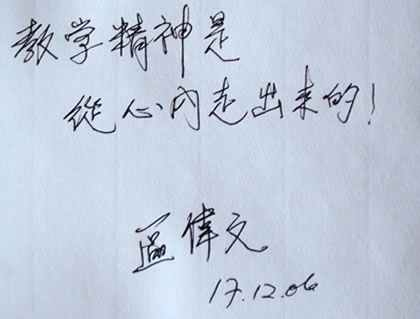 教学精神是
從心内走出来的！
區偉文
17.12.06